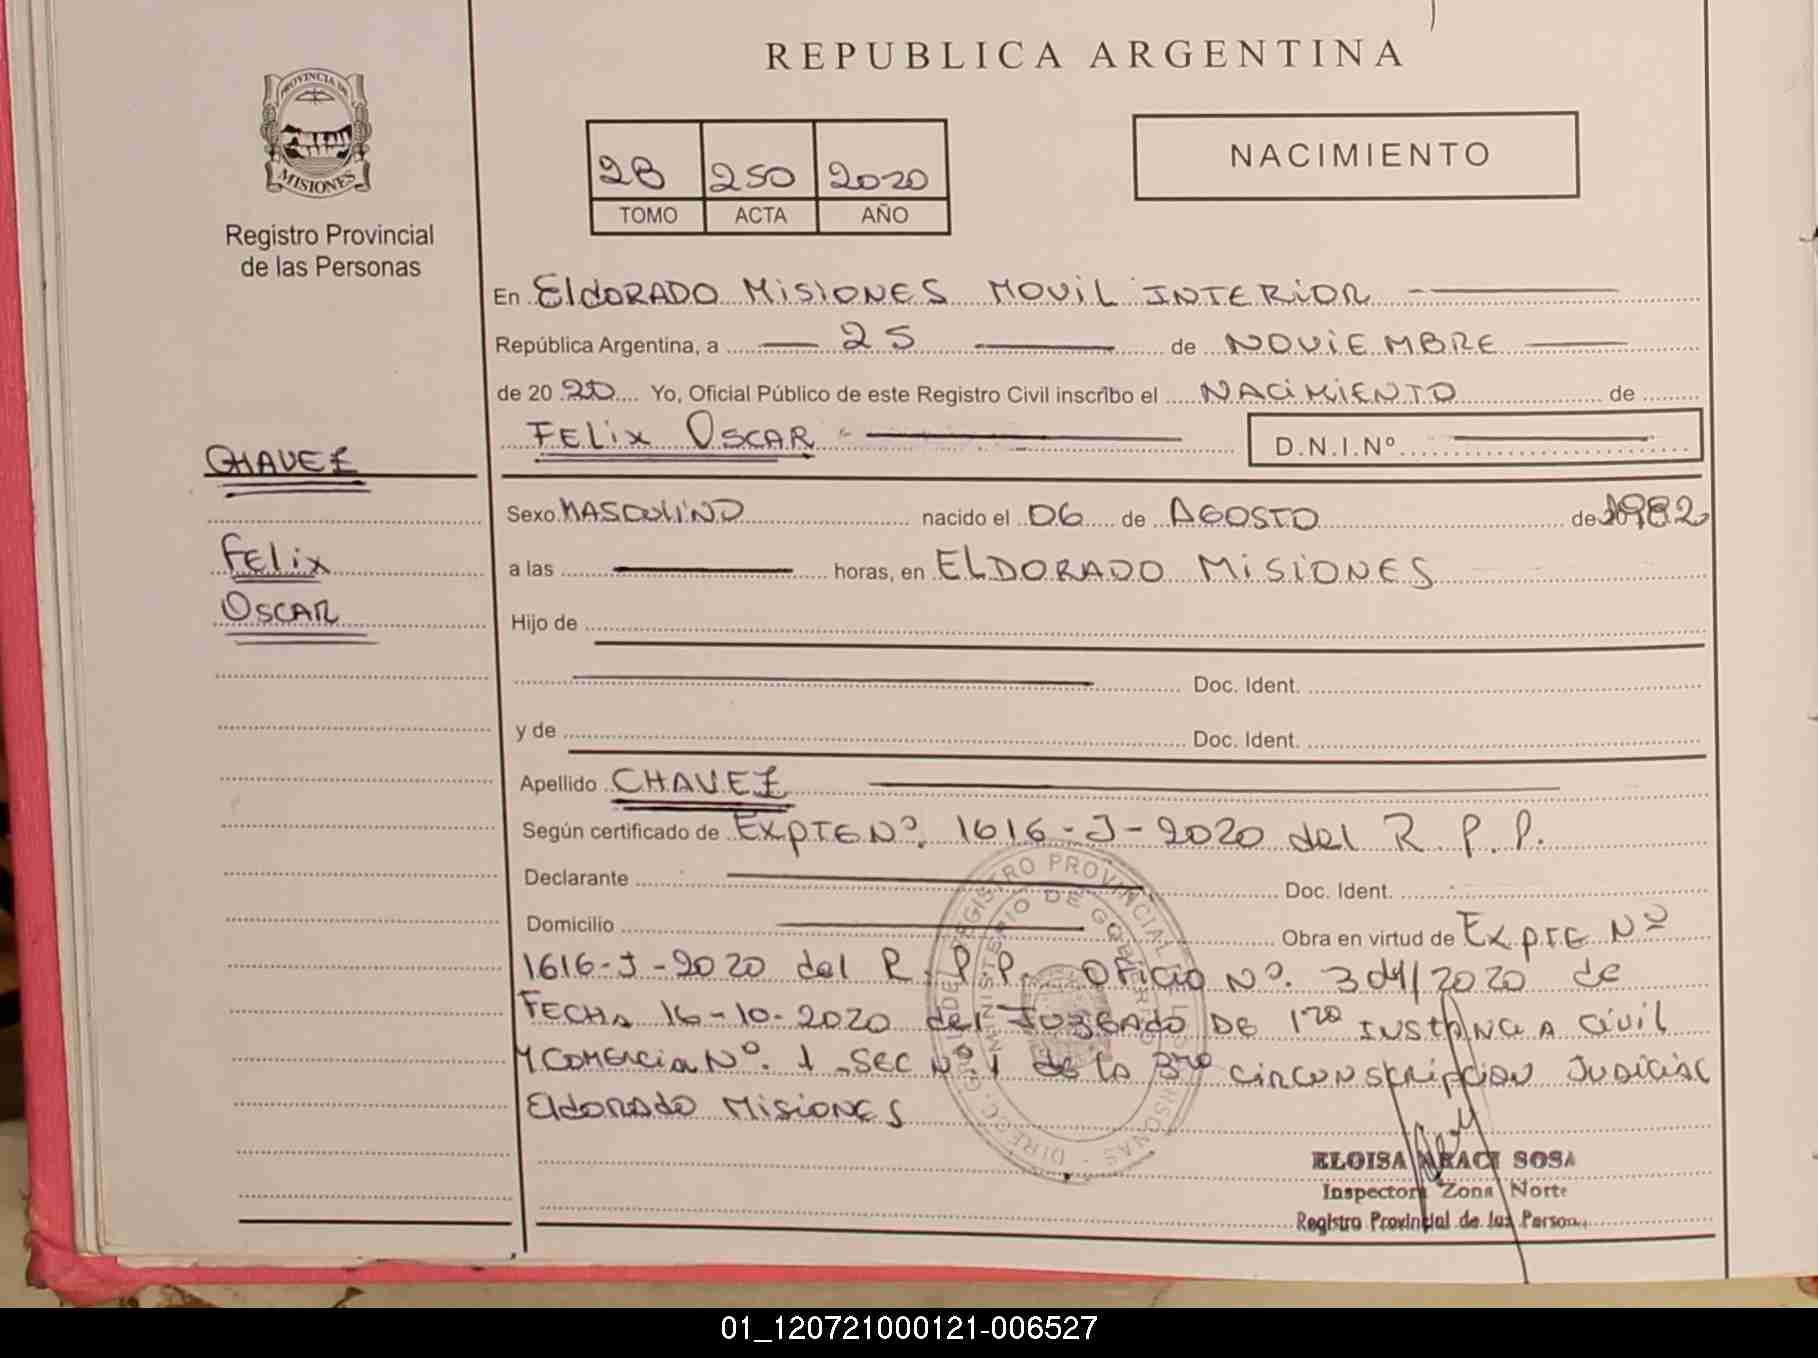 REPUBLICA ARGENTINA
PROVINCIA DE
MISIONES
Registro Provincial
de las Personas
2B 250 2020
TOMO ACTA AÑO
NACIMIENTO
En ElDORADO MISIONES MOVIL INTERIOR
República Argentina, a 25 de NOVIEMBRE
de 20 20 Yo, Oficial Público de este Registro Civil inscribo el NACIMIENTO de
FELIX OSCAR D.N.I.Nº
CHAVEZ
Sexo MASCULINO nacido el 06 de AGOSTO de 1982
FELIX
a las horas, en ELDORADO MISIONES
OSCAR
Hijo de
Doc. Ident.
y de Doc. Ident.
Apellido CHAVEZ
Según certificado de EXPTE Nº. 1616-J-2020 del R.P.P.
Declarante Doc. Ident.
Domicilio Obra en virtud de EXPTE Nº
1616-J-2020 del R.P.P. OFICIO Nº. /2020 de
FECHA 16-10-2020 del JUZGADO DE 1ra INSTANCIA CIVIL
Y COMERCIAL Nº. 1 SEC Nº 1 de la 3ra CIRCUNSCRIPCION JUDICIAL
ElDORADO MISIONES
DIREC. GRAL. DEL REGISTRO PROVINCIAL DE LAS PERSONAS
MINISTERIO DE GOBIERNO
ELOISA ARACI SOSA
Inspectora Zona Norte
Registro Provincial de las Person
01_120721000121-006527